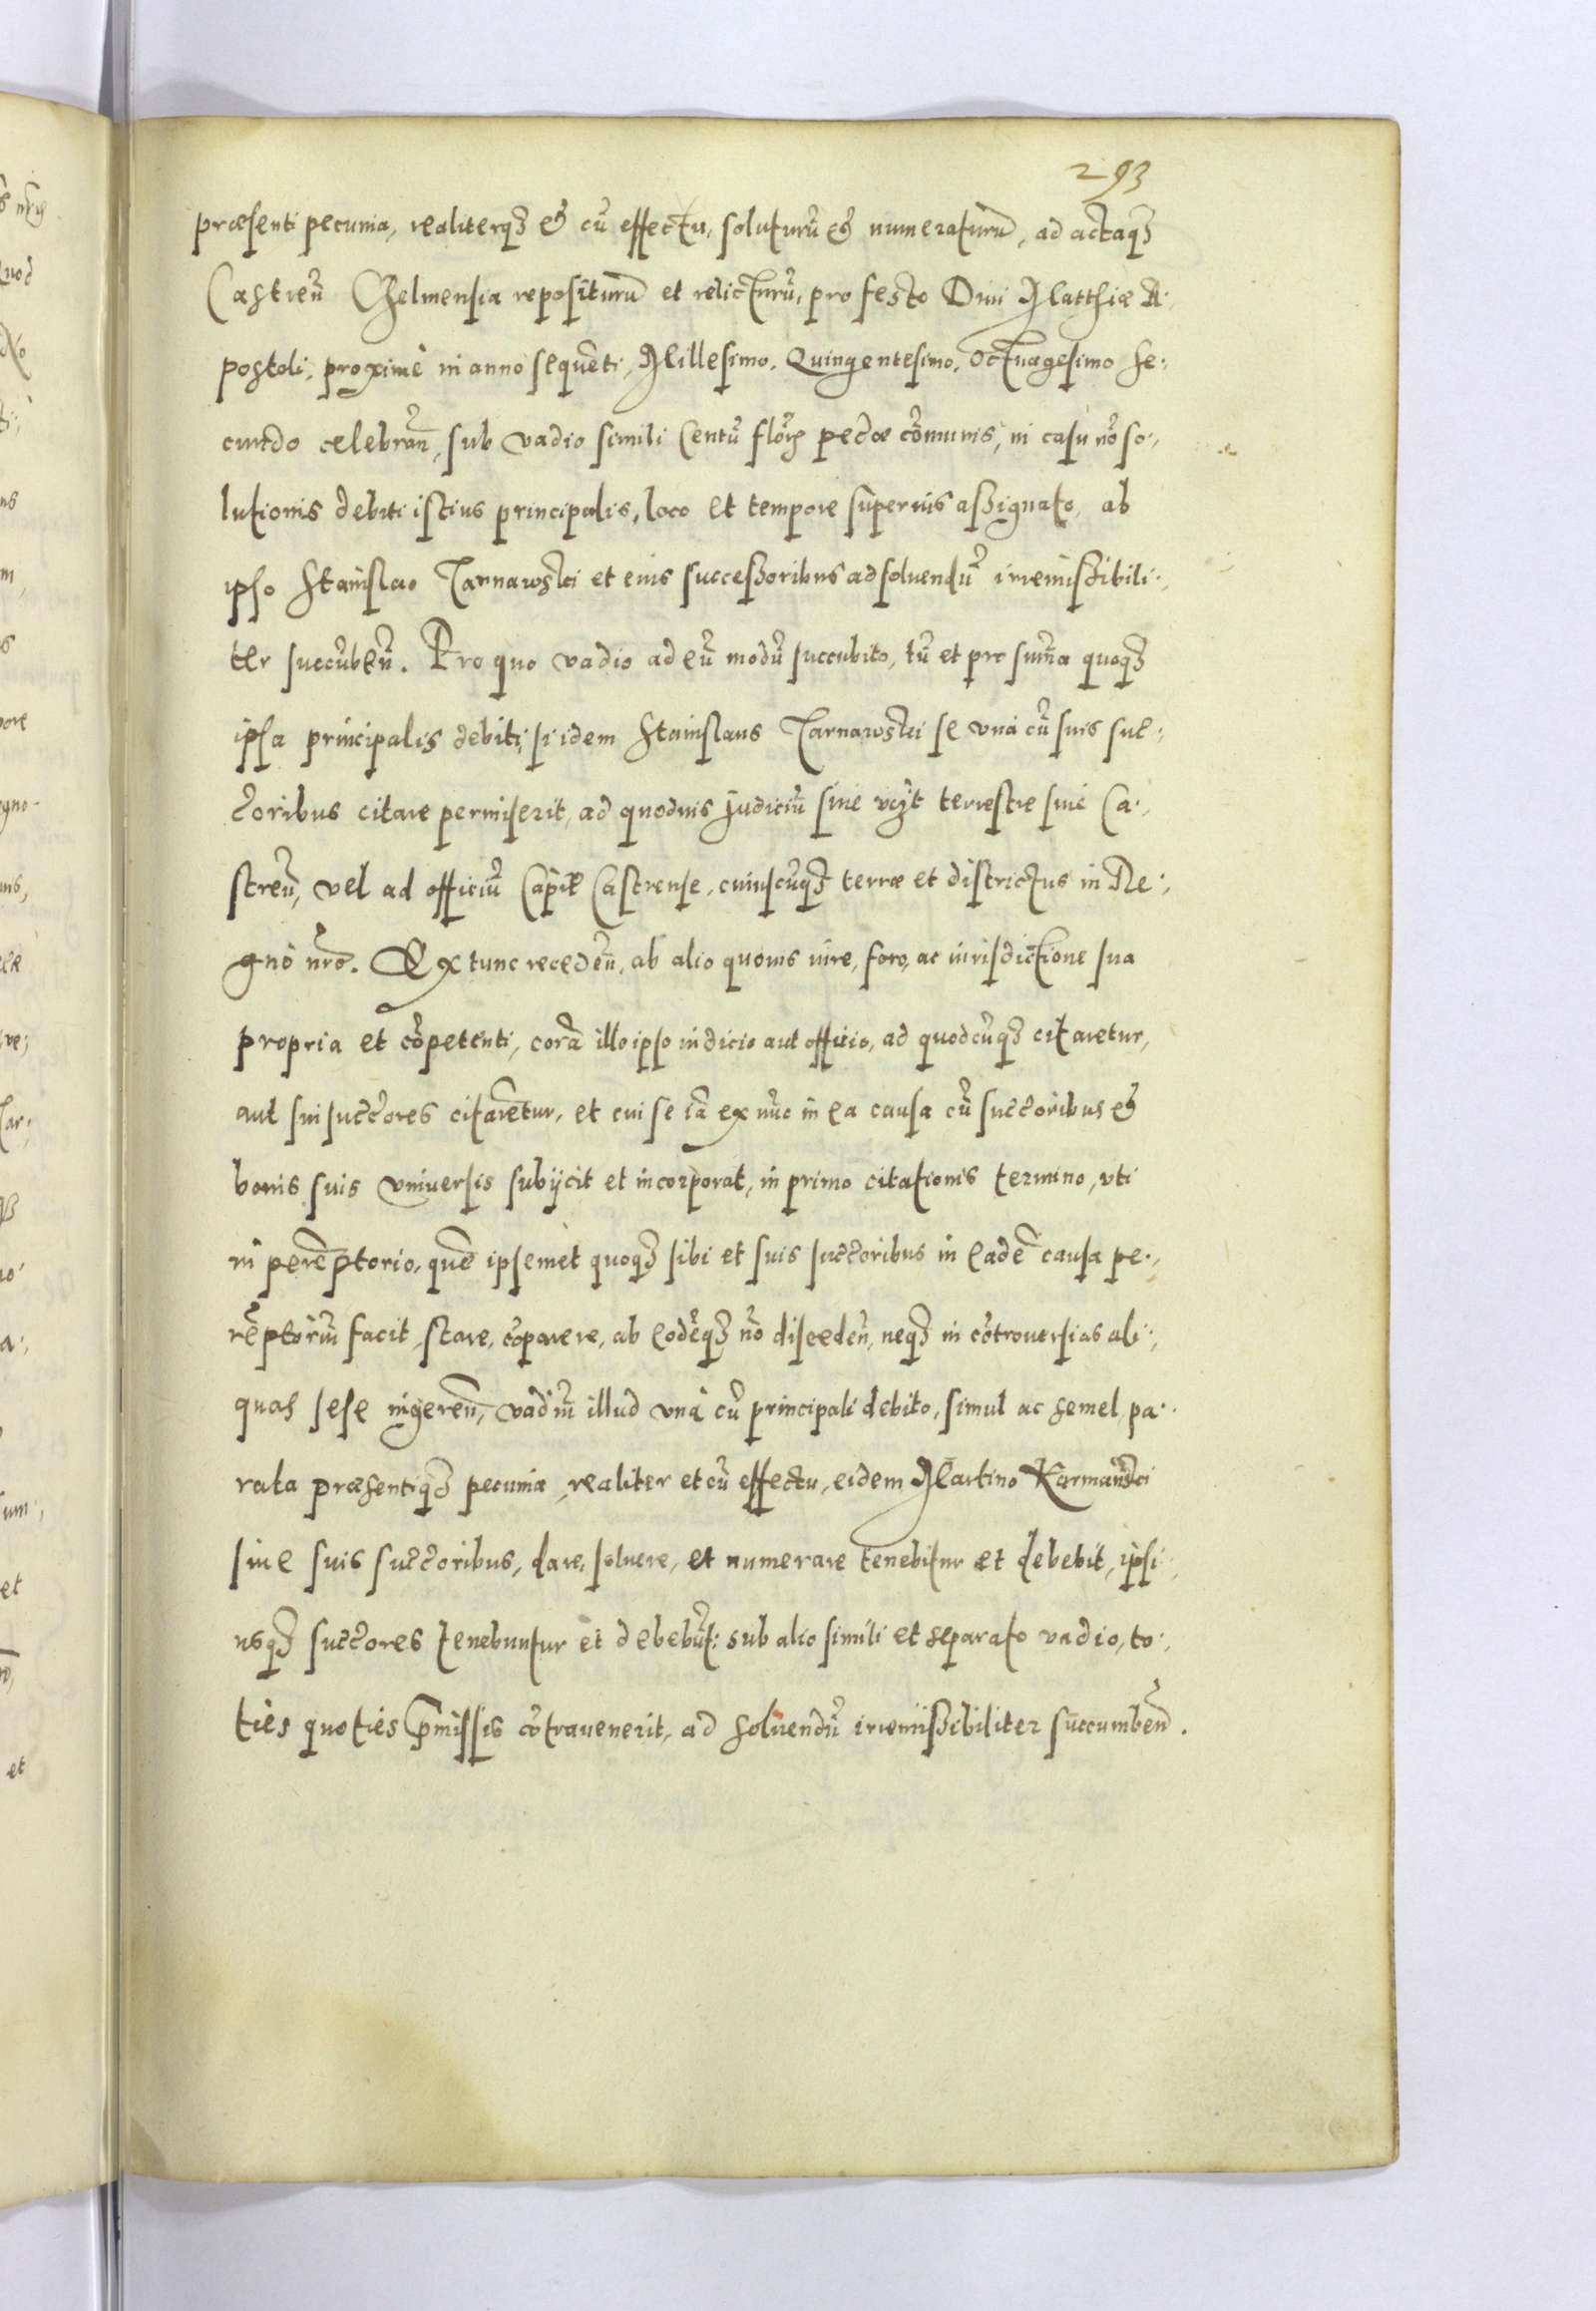 293
præsenti pecunia, realiterqȝ & cũ effectu, soluturũ & numeraturũ, ad actaqȝ
Castreñ Chelmensia repositurũ et relicturũ, pro festo Diui Matthiæ A:
postoli, proximè in anno sequẽti, Millesimo, Quingentesimo, Octuagesimo Se:
cundo celebrañ, sub vadio simili Centũ florẽ pectæ cõmunis, in casu nõ so:
lutionis debiti istius principalis, loco et tempore superiùs assignato, ab
ipso Stanislao Tarnawski et eius successoribus ad soluendũ irremissibili:
ter succũbeñ. Pro quo vadio ad eũ modũ succubito, tũ et pro suma quoqȝ
ipsa principalis debiti, si idem Stanislaus Tarnawski se vnà cũ suis suc:
ctoribus citare permiserit, ad quoduis Judiciũ siue vcȝt terrestre siue Ca:
streñ, vel ad officiũ Capit Castrense, cuiuscũqȝ terræ et districtus in Re:
gno nro. Ex tunc recedeñ, ab alio quouis iure, foro, ac iurisdictione sua
propria et cõpetenti, corã illo ipso iudicio aut officio, ad quodcũqȝ citaretur,
aut sui succtores citarẽtur, et cui se iã ex nũc in ea causa cũ succtoribus &
bonis suis vniuersis subijcit et incorporat, in primo citationis termino, vti
in perẽptorio, quẽ ipsemet quoqȝ sibi et suis succtoribus in eadẽ causa pe:
rẽptoriũ facit, stare, cõparere, ab eodẽqȝ nõ discedeñ, neqȝ in cõtrouersias ali:
quas sese ingereñ, vadiũ illud vnà cũ principali debito, simul ac semel, pa:
rata præsentiqȝ pecunia, realiter et cũ effectu, eidem Martino Karmański
siue suis succtoribus, dare, soluere, et numerare tenebitur et debebit, ipsi:
usqȝ succtores tenebuntur et debebũt: sub alio simili et separato vadio, to:
ties quoties p̃missis cõtrauenerit, ad soluendũ irremissibiliter succumbeñ.